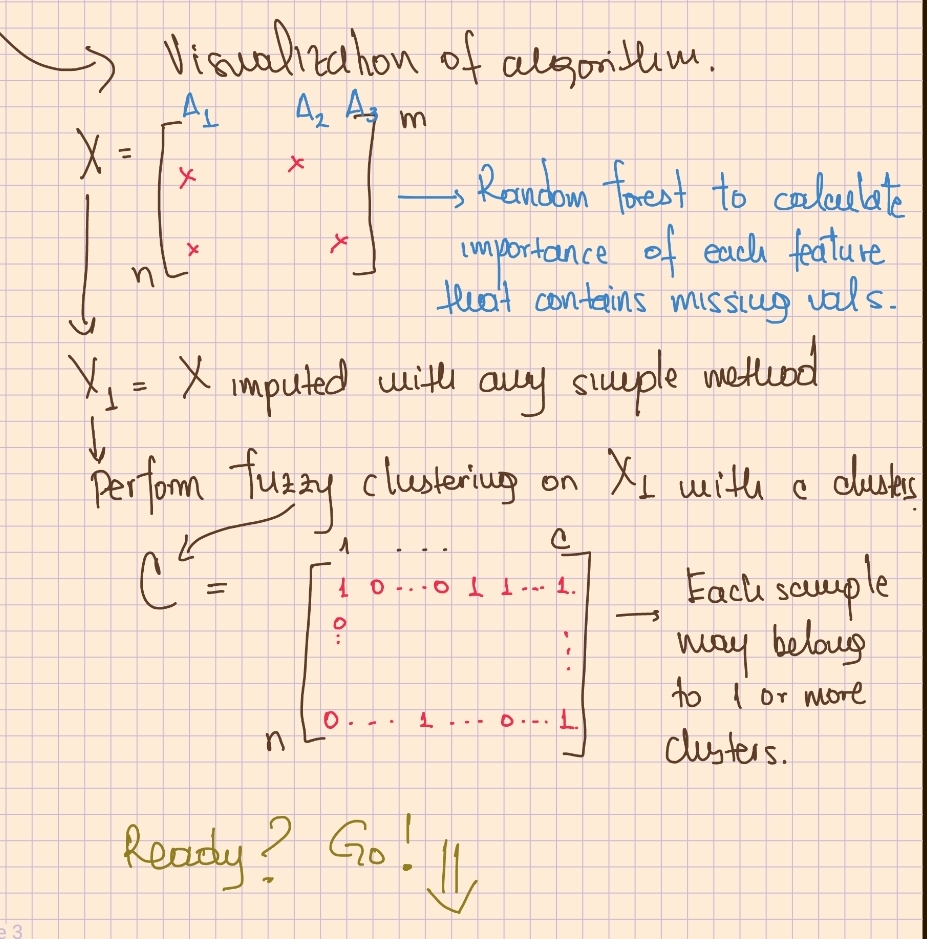 Visualization of algorithm.
A1 A2 A3 m
X =
x x
x x
n
Random forest to calculate
importance of each feature
that contains missing vals.
X1 = X imputed with any simple method
Perform fuzzy clustering on X1 with c clusters.
1 ... C
C =
1 0 ... 0 1 1 ... 1.
0
0 ... 1 ... 0 ... 1.
n
Each sample
may belong
to 1 or more
clusters.
Ready? Go!
e 3